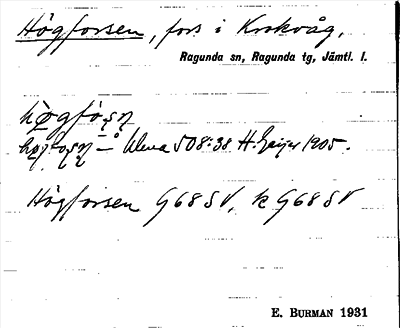 Högforsen, fors i Krokvåg,
Ragunda sn, Ragunda tg, Jämtl. l.
508:38 H. Geijer 1905.
Högforsen G68SV, k G68SV
E. BURMAN 1931